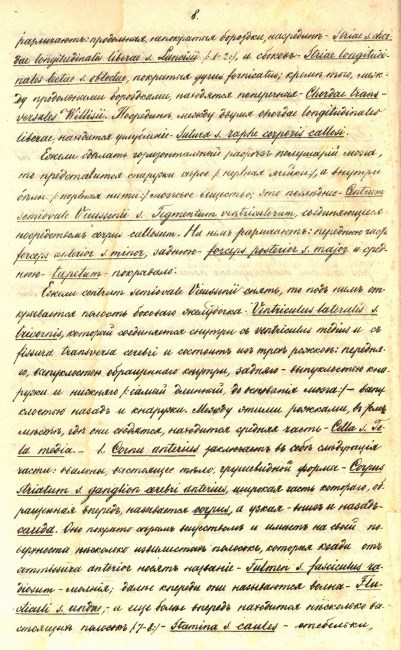 8.
различаютъ: продольныя, непокрытыя бороздки, посрединѣ - Striae s. chor-
dae longitudinales liberae s. Lancisii /:1-2:/, и сбоковъ - Striae longitudi-
nales tectae s. obtectae, покрытыя gyrus fornicatus; кромѣ того, меж-
ду продольными бороздками, находятся поперечныя - Chordae trans-
versales Willisii. Посрединѣ, между двумя chordae longitudinales
liberae, находится углубленіе - Sutura s. raphe corporis callosi.
Если сдѣлать горизонтальный разрѣзъ полушарій мозга,
то представится снаружи сѣрое /: нервныя ячейки:/, а внутри
бѣлое /: нервныя нити:/ мозговое вещество; это послѣднее - Centrum
semiovale Vieussenii s. Tegmentum ventriculorum, соединяющееся
посредствомъ corpus callosum. На немъ различаютъ: переднюю часть
forceps anterior s. minor, заднюю - forceps posterior s. major и сред-
нюю - tapetum - покрывало.
Если centrum semiovale Vieussenii снять, то подъ нимъ от-
крывается полость боковаго желудочка - Ventriculus lateralis s.
tricornis, который соединяется внутри съ ventriculus medius и съ
fissura transversa cerebri и состоитъ изъ трехъ рожковъ: передня-
го, выпуклостью обращеннаго внутри, задняго - выпуклостью кна-
ружи и нижняго /: самый длинный, до основанія мозга:/ - выпу-
клостью назадъ и кнаружи. Между этими рожками, въ
мѣстѣ, гдѣ они сходятся, находится средняя часть - Cella s. Te-
la media. - 1. Cornu anterius заключаетъ въ себѣ слѣдующія
части: овальное, выстоящее тѣло, грушевидной формы - Corpus
striatum s. ganglion cerebri anterius, широкая часть котораго, об-
ращенная впередъ, называется corpus, а узкая - внизъ и назадъ -
cauda. Оно покрыто сѣрымъ веществомъ и имѣетъ на своей по-
верхности нѣсколько извилистыхъ полосокъ, которыя кзади отъ
commissura anterior носятъ названіе - Fulmen s. fasciculus ra-
diosum - молнія; далѣе кпереди они называются волна - Flu-
cticuli s. undae, - и еще болѣе впередъ находится нѣсколько вы-
стоящихъ полосъ /:7-8:/ - Stamina s. caules - стебельки,